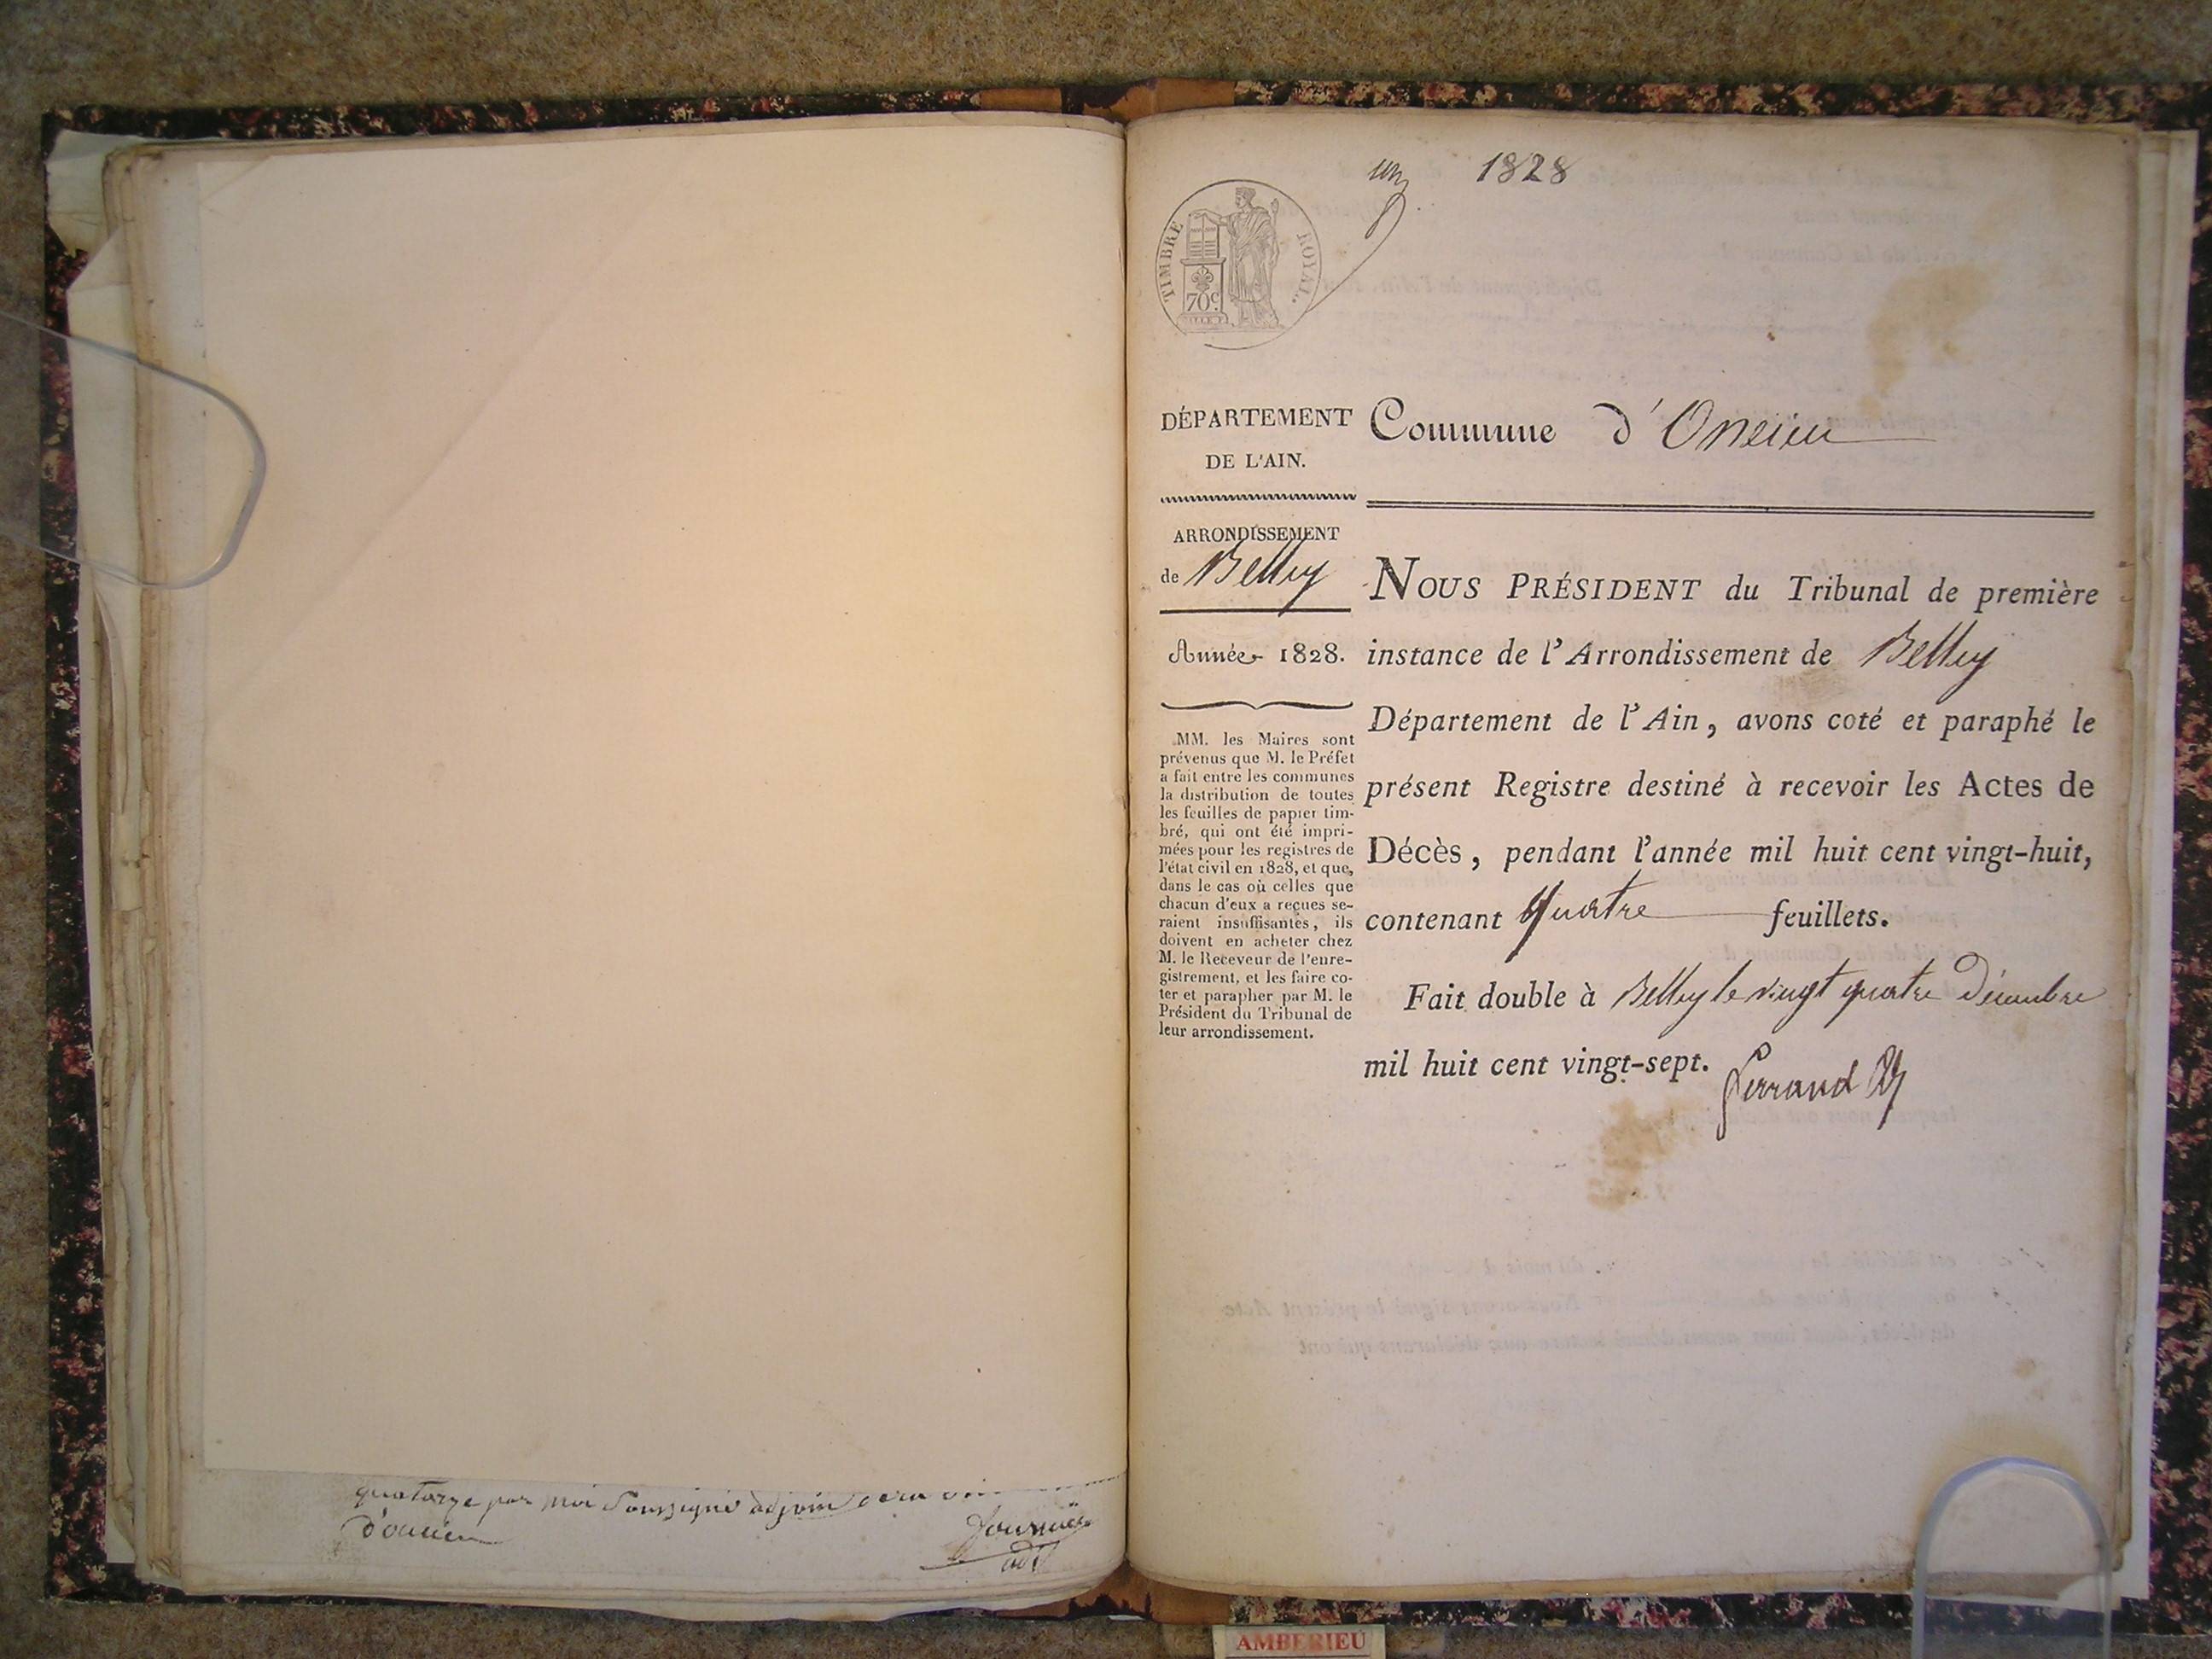 quatorze par moi Soussigné adjoint
d'oncieu
adjt
un
1828
TIMBRE ROYAL.
70c.
DÉPARTEMENT
DE L'AIN.
ARRONDISSEMENT
de Belley
Année 1828.
MM. les Maires sont
prévenus que M. le Préfet
a fait entre les communes
la distribution de toutes
les feuilles de papier tim-
bré, qui ont été impri-
mées pour les registres de
l'état civil en 1828, et que,
dans le cas où celles que
chacun d'eux a reçues se-
raient insuffisantes, ils
doivent en acheter chez
M. le Receveur de l'enre-
gistrement, et les faire co-
ter et parapher par M. le
Président du Tribunal de
leur arrondissement.
Commune d'Oneieu
NOUS PRÉSIDENT du Tribunal de première
instance de l'Arrondissement de Belley
Département de l'Ain, avons coté et paraphé le
présent Registre destiné à recevoir les Actes de
Décès, pendant l'année mil huit cent vingt-huit,
contenant quatre feuillets.
Fait double à Belley le vingt quatre Décembre
mil huit cent vingt-sept.
AMBERIEU